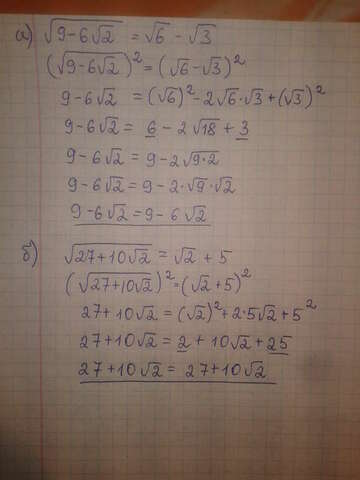 а) √(9-6√2) = √6 - √3
(√(9-6√2))² = (√6-√3)²
9-6√2 = (√6)² - 2√6·√3 + (√3)²
9-6√2 = 6 - 2√18 + 3
9-6√2 = 9 - 2√(9·2)
9-6√2 = 9 - 2·√9·√2
9-6√2 = 9 - 6√2
б) √(27+10√2) = √2 + 5
(√(27+10√2))² = (√2+5)²
27+10√2 = (√2)² + 2·5√2 + 5²
27+10√2 = 2 + 10√2 + 25
27+10√2 = 27+10√2